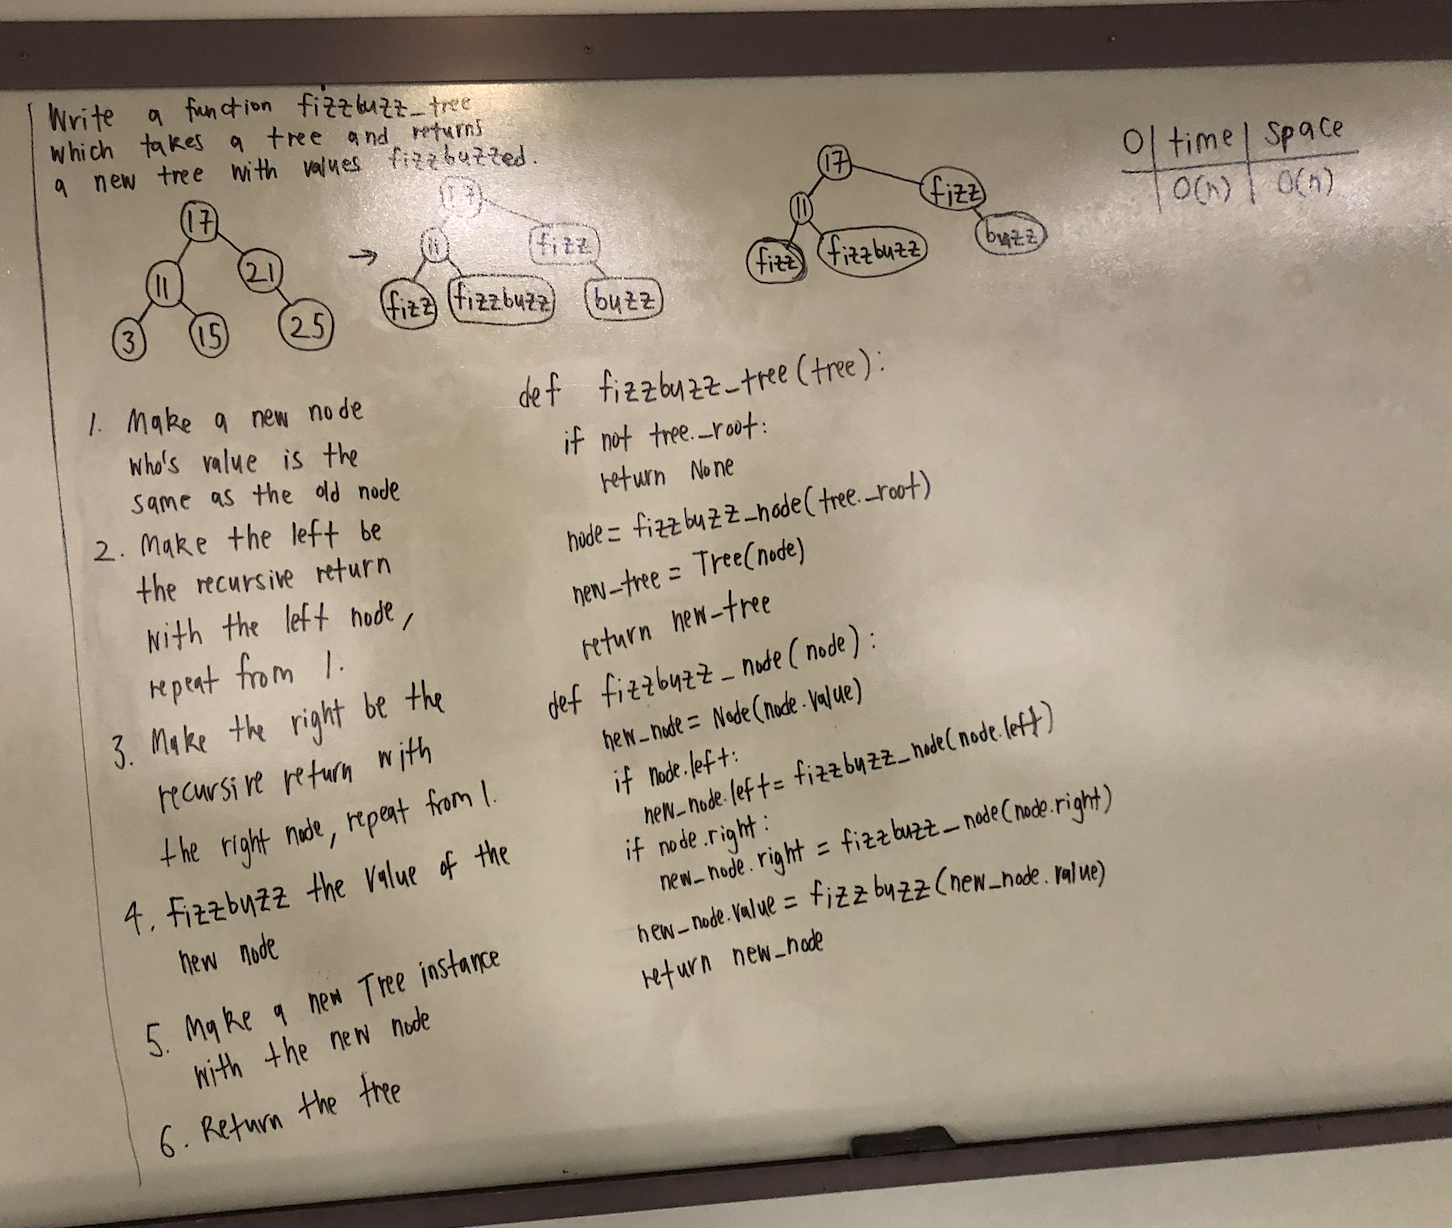 Write a function fizzbuzz_tree
which takes a tree and returns
a new tree with values fizzbuzzed.
17
11 21
3 15 25
→
17
11 fizz
fizz fizzbuzz buzz
17
11 fizz
fizz fizzbuzz buzz
O | time | space
O(n) | O(n)
1. Make a new node
who's value is the
same as the old node
2. Make the left be
the recursive return
with the left node,
repeat from 1.
3. Make the right be the
recursive return with
the right node, repeat from 1.
4. Fizzbuzz the value of the
new node
5. Make a new Tree instance
with the new node
6. Return the tree
def fizzbuzz_tree(tree):
if not tree._root:
return None
node = fizzbuzz_node(tree._root)
new_tree = Tree(node)
return new_tree
def fizzbuzz_node(node):
new_node = Node(node.value)
if node.left:
new_node.left = fizzbuzz_node(node.left)
if node.right:
new_node.right = fizzbuzz_node(node.right)
new_node.value = fizzbuzz(new_node.value)
return new_node